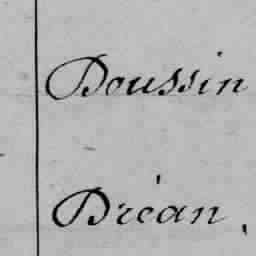 Doussin
Dréan.